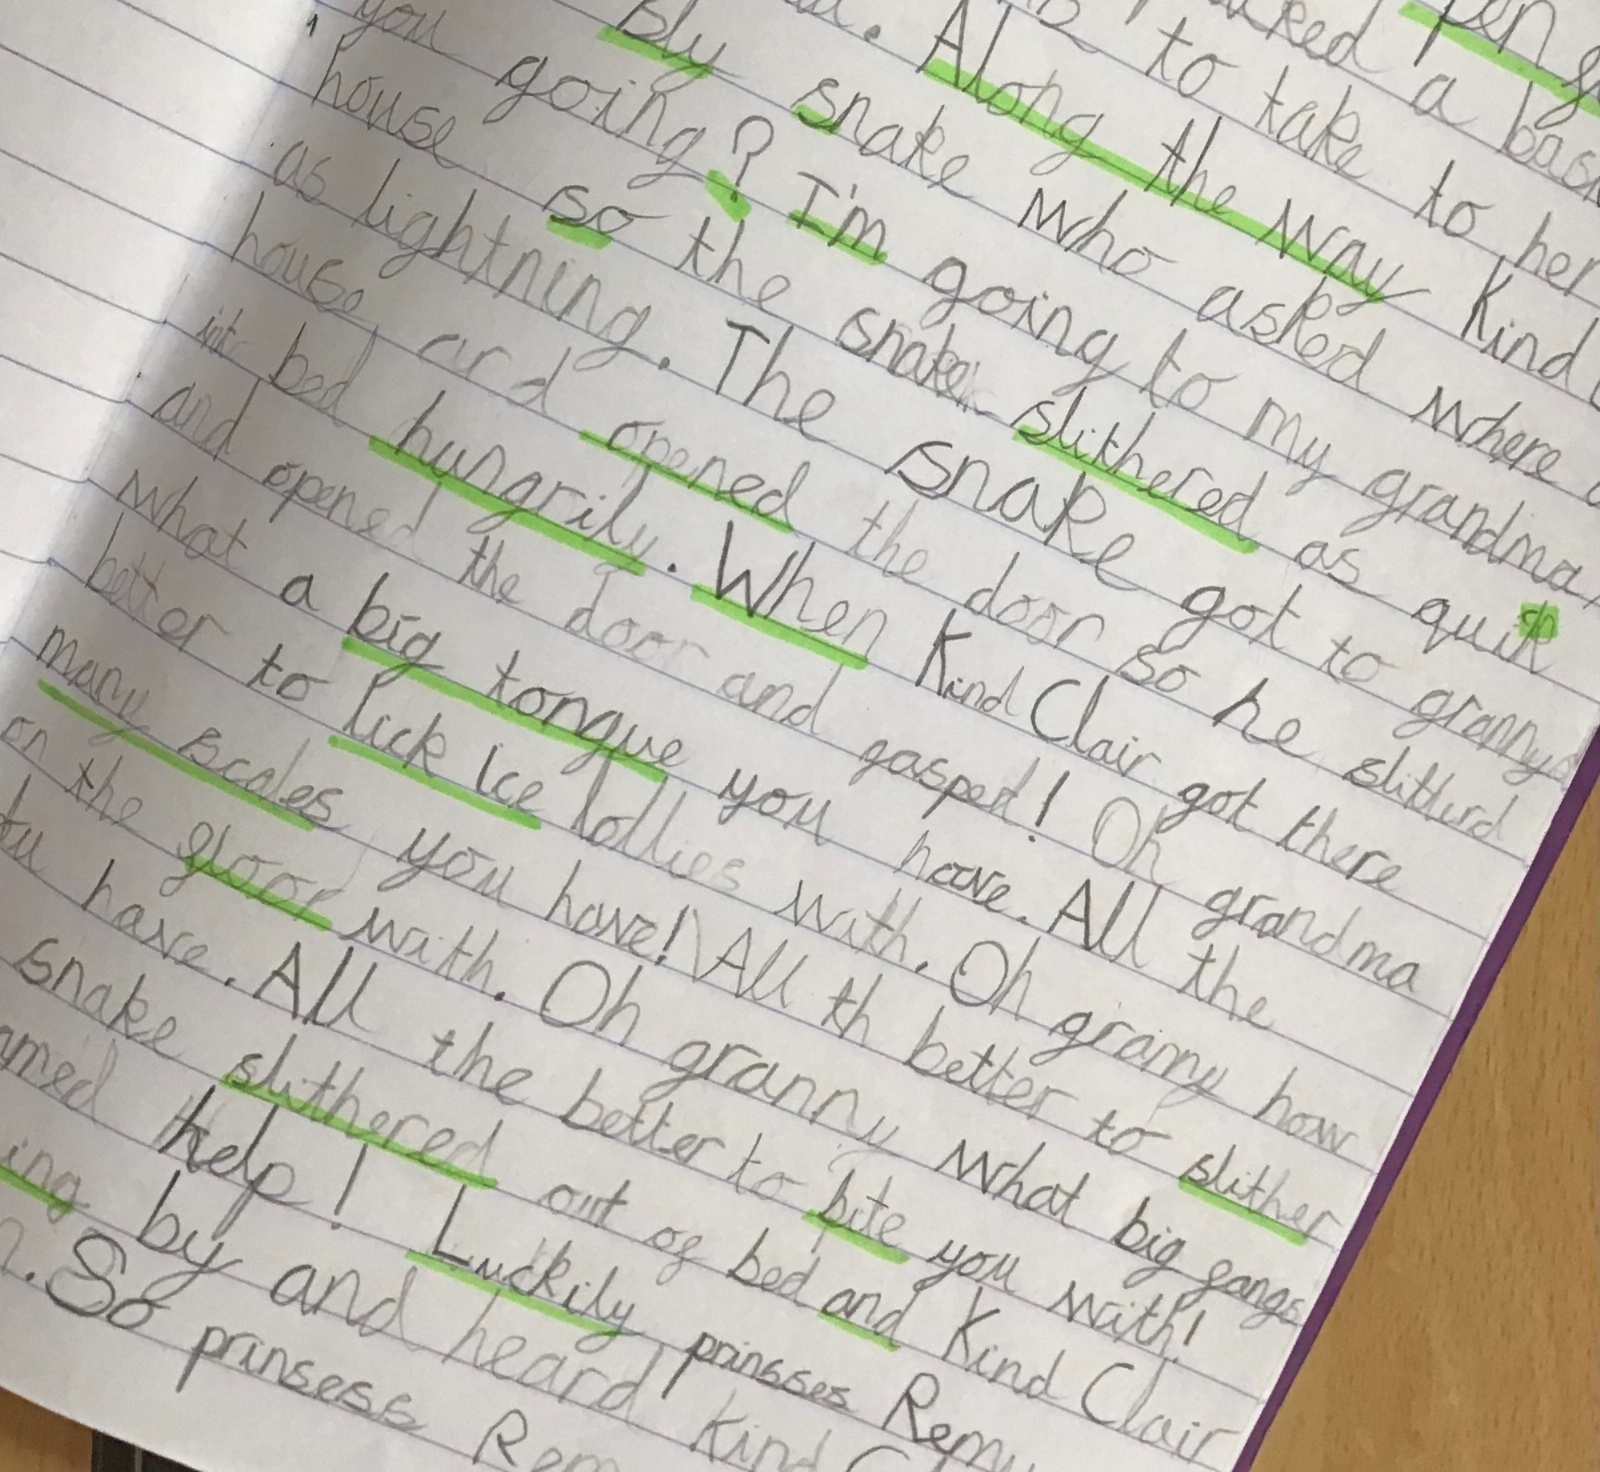 pen
a
to take to her
Along the way Kind
sly snake who asked where
you going? I'm going to my grandma
house so the snake slithered as quik
as lightning. The snake got to grannys
house and opened the door so he slitherd
into bed hungrily. When Kind Clair got there
and opened the door and gasped! Oh grandma
what a big tongue you have. All the
better to lick ice lollies with. Oh granny how
many scales you have! All th better to slither
on the gloor with. Oh granny what big gangs
have. All the better to bite you with!
snake slithered out og bed and Kind Clair
amed help! Luckily prinsses Remy
ing by and heard Kind C
. So prinsess Rem